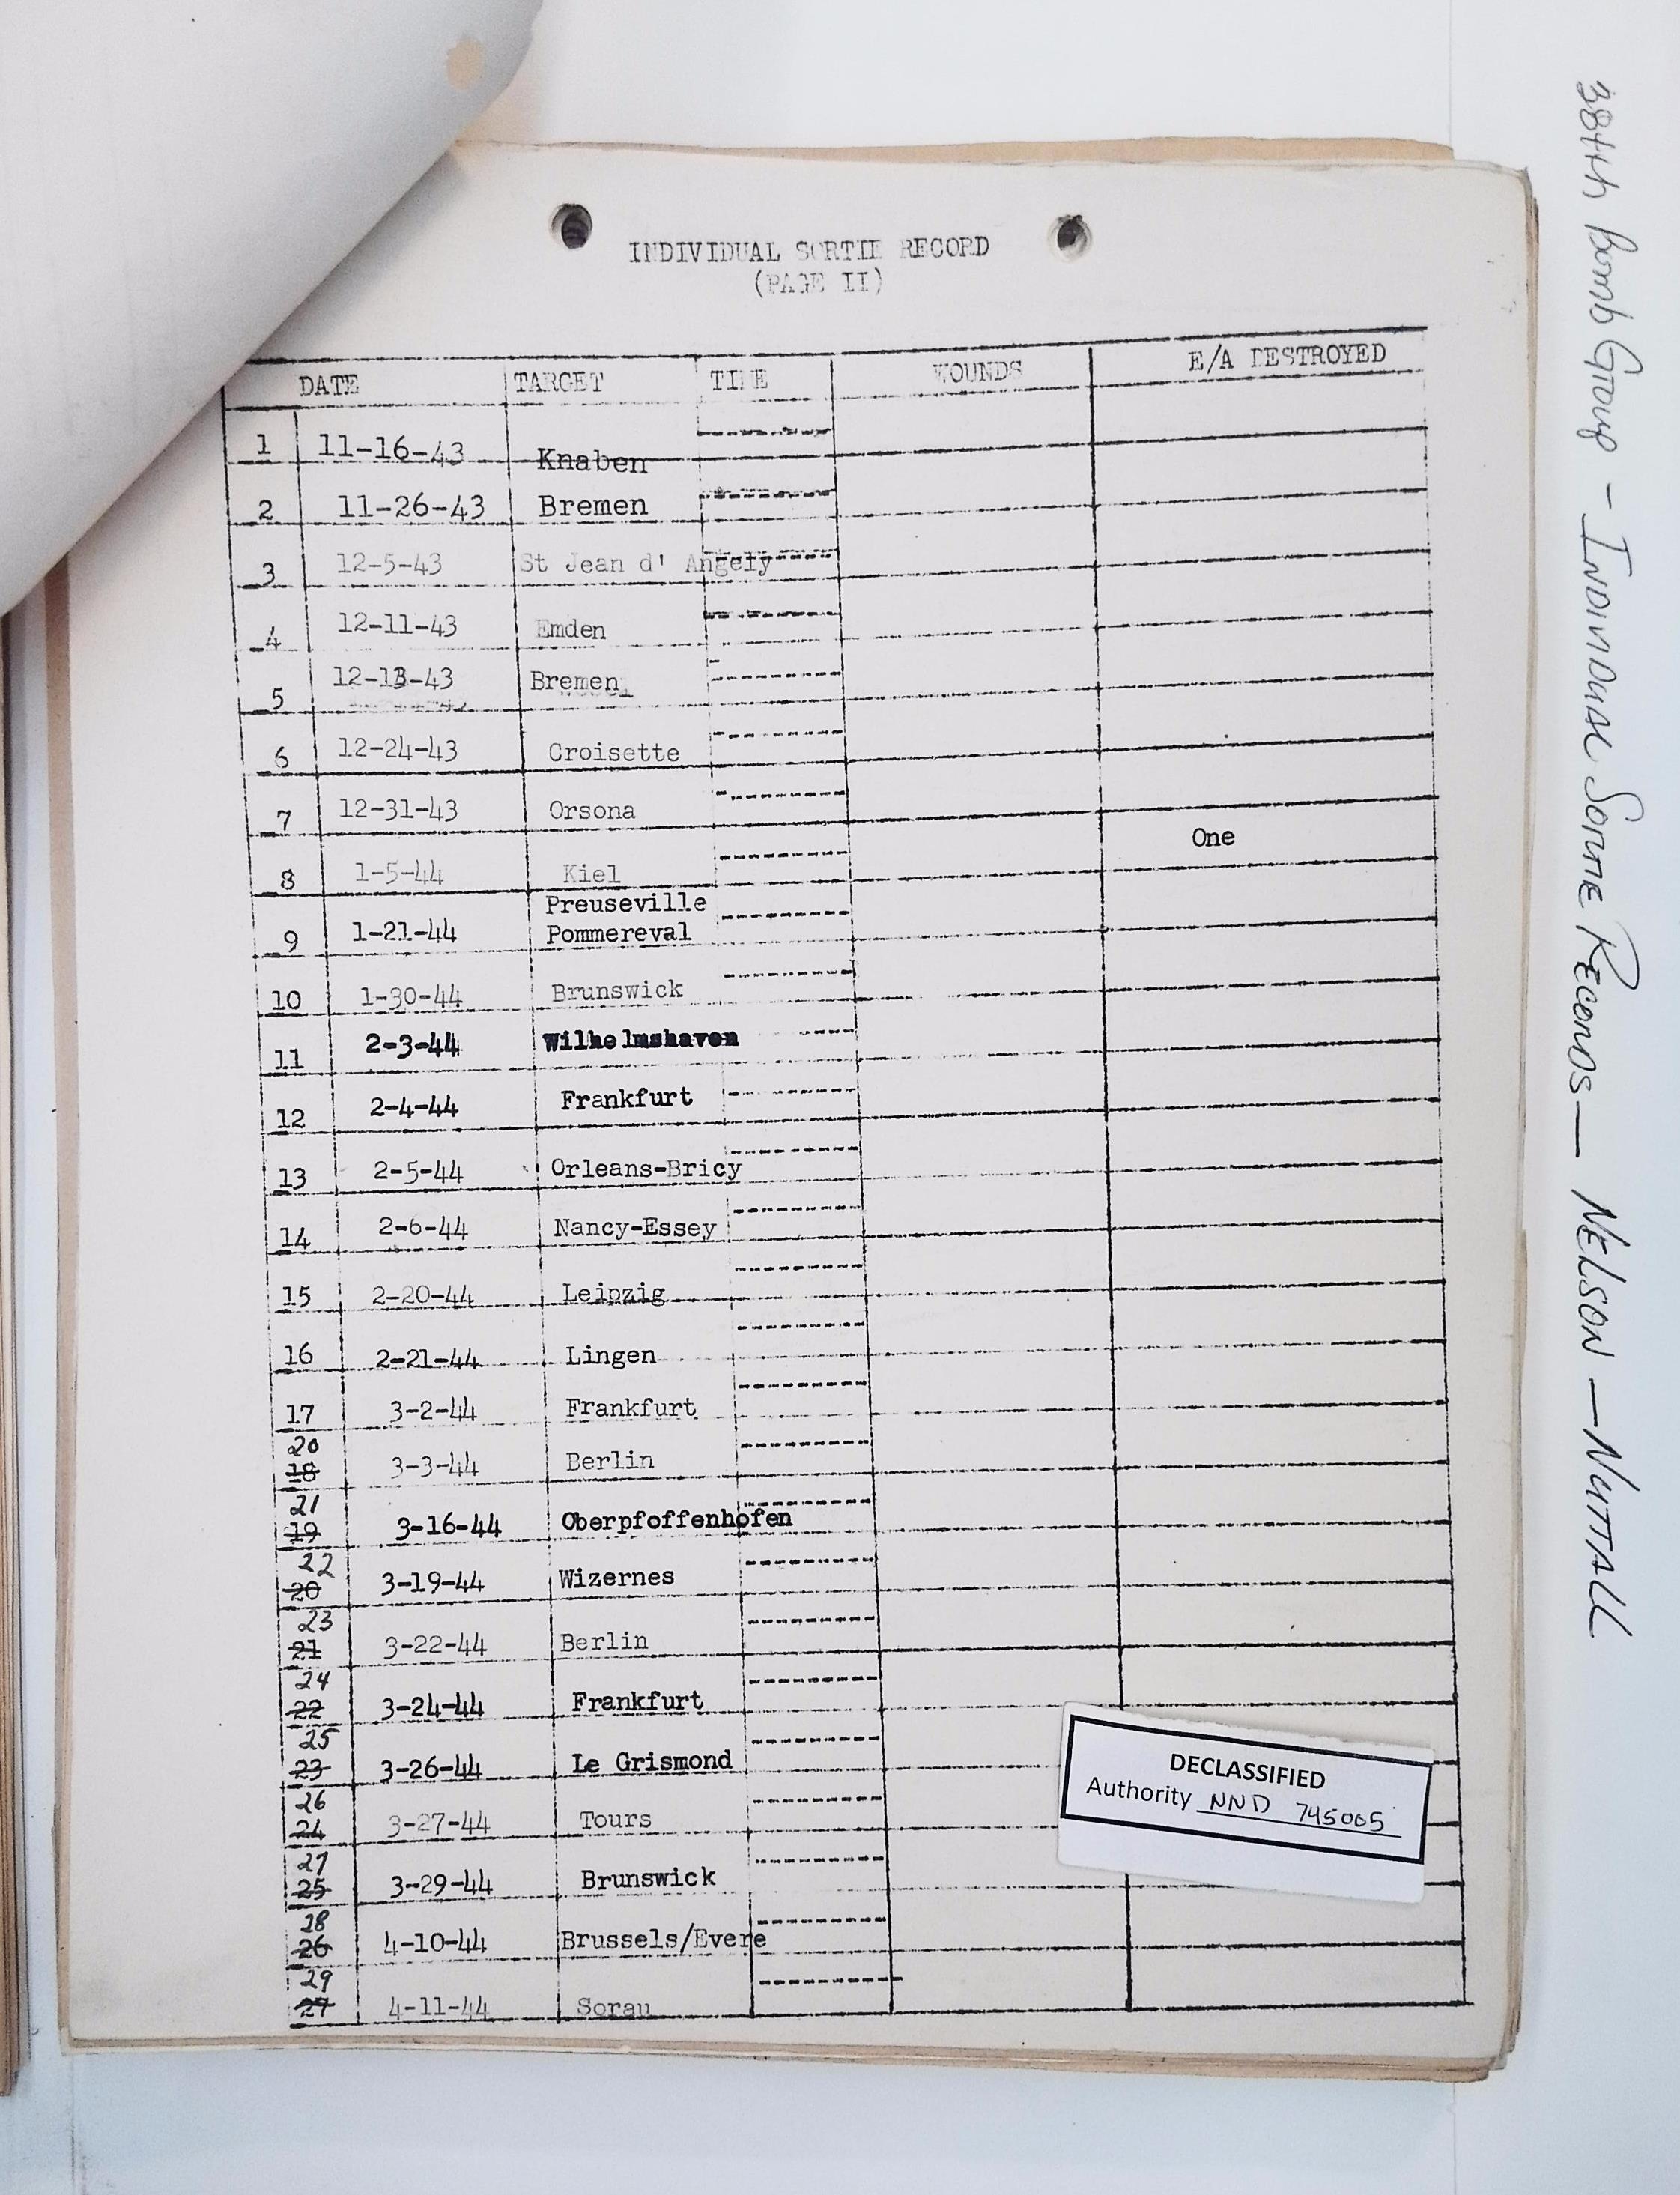 INDIVIDUAL SORTIE RECORD
(PAGE II)
DATE TARGET TIME WOUNDS E/A DESTROYED
1 11-16-43 Knaben
2 11-26-43 Bremen
3 12-5-43 St Jean d' Angely
4 12-11-43 Emden
5 12-13-43 Bremen
6 12-24-43 Croisette
7 12-31-43 Orsona
One
8 1-5-44 Kiel
Preuseville
9 1-21-44 Pommereval
10 1-30-44 Brunswick
11 2-3-44 Wilhelmshaven
12 2-4-44 Frankfurt
13 2-5-44 Orleans-Bricy
14 2-6-44 Nancy-Essey
15 2-20-44 Leipzig
16 2-21-44 Lingen
17 3-2-44 Frankfurt
20
18 3-3-44 Berlin
21
19 3-16-44 Oberpfoffenhofen
22
20 3-19-44 Wizernes
23
21 3-22-44 Berlin
24
22 3-24-44 Frankfurt
25
23 3-26-44 Le Grismond
26
24 3-27-44 Tours
27
25 3-29-44 Brunswick
28
26 4-10-44 Brussels/Evere
29
27 4-11-44 Sorau
DECLASSIFIED
Authority NND 745005
384th Bomb Group - Individual Sortie Records - NELSON - NUTTALL